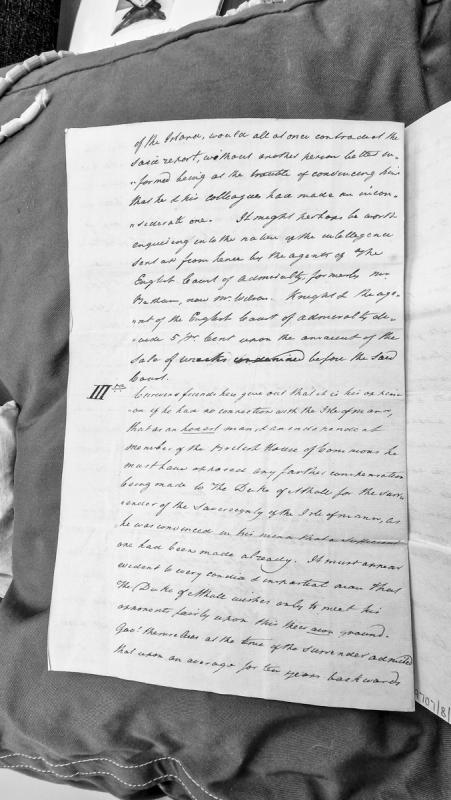 of the Island, would all at once contradict the
said report, without another person better in-
-formed being at the trouble of convincing him
that he & his colleagues had made an incon-
-siderate one. It might perhaps be worth
enquiring into the nature of the intelligence
sent at from hence by the agents of The
English Court of admiralty, formerly Mr.
now Mr. Wilson. Knight & the age-
-nt of the English Court of admiralty di-
-vide 5 Pr. Cent upon the amount of the
sale of wrecks condemned before the said
Court.
III
Curwens friends here give out that it is his opinion
-on if he had no connection with the Isle of mann,
that as an honest man, & an independent
member of the British House of Commons he
must have opposed any farther compensation
being made to The Duke of Atholl for the Surr-
-ender of the Sovereignty of the Isle of mann, as
he was convinced in his mind that a sufficient
one had been made already. It must appear
evident to every candid & impartial man that
The Duke of Atholl wishes only to meet his
opponents fairly upon this their own ground.
Govt. themselves at the time of the Surrender admitted
that upon an average for ten years backwards
9707/8/